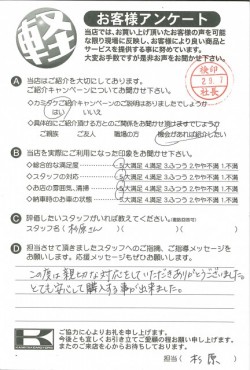 軽
お客様アンケート
当店では、お買い上げ頂いたお客様の声を可能
な限り現場に反映し、お客様により良い商品と
サービスを提供する事に努めています。
大変お手数ですが是非お声をお聞かせ下さい。
検印
2.9.7
社長
A 当店はご紹介を大切にしております。
ご紹介キャンペーンについてお聞かせ下さい。
◇カミタケご紹介キャンペーンのご説明はありましたでしょうか
はい いいえ
◇具体的にご紹介頂ける方とのご関係をお聞かせ願いますでしょうか
ご親族 ご友人 職場の方 機会があれば紹介したい
B 当店を実際にご利用になった印象をお聞かせ下さい。
◇総合的な満足度 5.大満足 4.満足 3.ふつう 2.やや不満 1.不満
◇スタッフの対応 5.大満足 4.満足 3.ふつう 2.やや不満 1.不満
◇お店の雰囲気、清掃 5.大満足 4.満足 3.ふつう 2.やや不満 1.不満
◇納車時のお車の状態 5.大満足 4.満足 3.ふつう 2.やや不満 1.不満
C 評価したいスタッフがいれば教えてください。
スタッフ名( 杉原さん )( )( )
D 担当させて頂きましたスタッフへのご指摘、ご指導メッセージを
お願いします。応援メッセージもぜひお願いします。
この度は親切な対応をしていただきありがとうございました。
とても安心して購入する事が出来ました。
K
ご協力に心よりお礼を申し上げます。
今後とも宜しくお引き立てご愛顧の程お願い申し上げます。
またのご来店を心からお待ちしております。
担当( 杉原 )